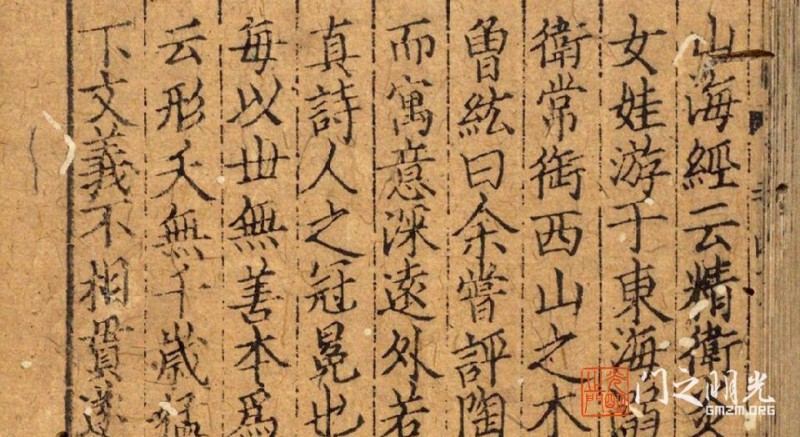 山海經云精衛炎
女娃游于東海溺
衛常銜西山之木
曾紘曰余嘗評陶
而寓意深遠外若
真詩人之冠冕也
每以世無善本爲
云形夭無千歲猛
下文義不相貫遂
光明之門
GMZM.ORG